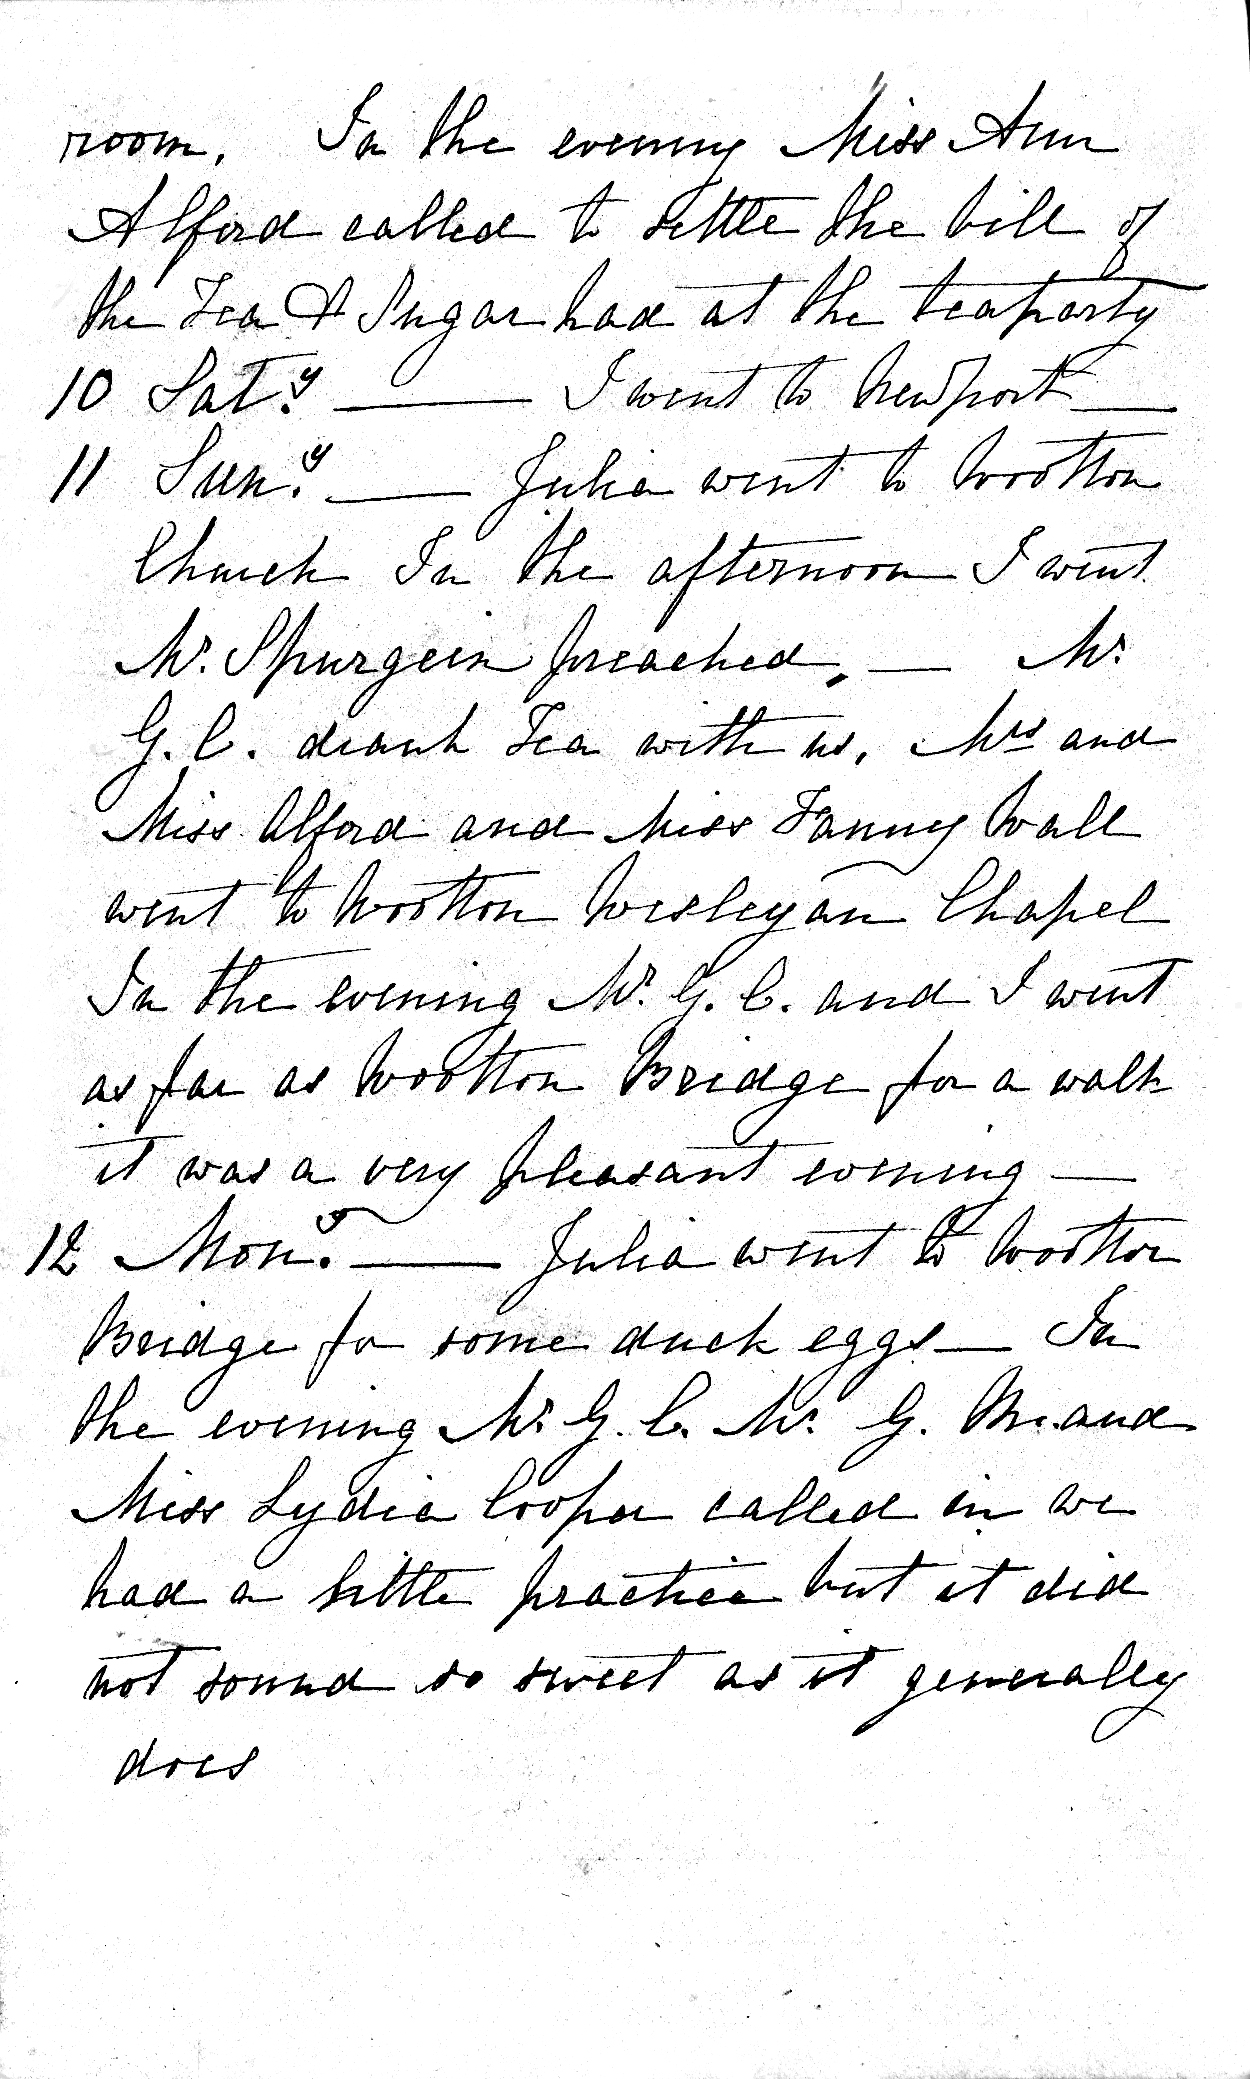 room. In the evening Miss Ann
Alford called to settle the bill of
the Tea & Sugar had at the teaparty
10 Sat.y — I went to Newport —
11 Sun.y — Julia went to Wootton
Church In the afternoon I went
Mr. Spurgein preached. — Mr
G. C. drank Tea with us. Mrs and
Miss Alford and Miss Fanny Wall
went to Wootton Wesleyan Chapel
In the evening Mr. G. C. and I went
as far as Wootton Bridge for a walk
it was a very pleasant evening —
12 Mon.y — Julia went to Wootton
Bridge for some duck eggs — In
the evening Mr. G. C. Mr. G. and
Miss Lydia Cooper called in we
had a little practice but it did
not sound so sweet as it generally
does